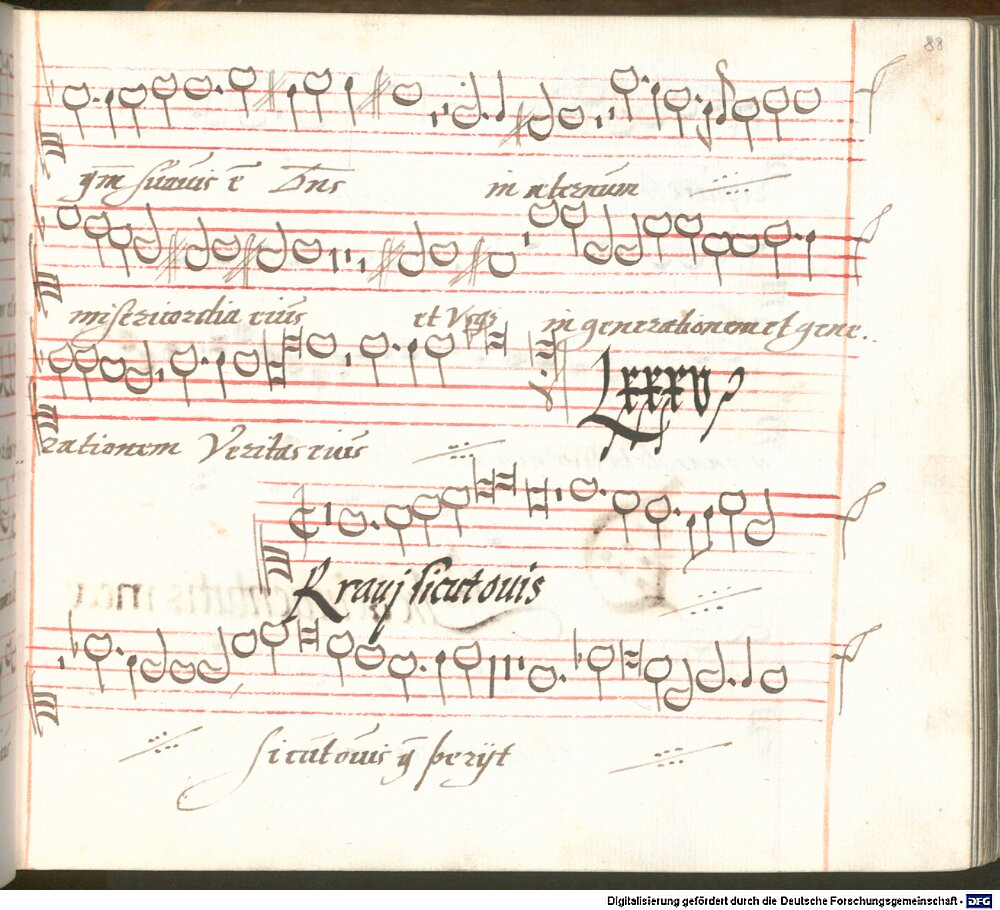 88
qm̄ suauis ē Dn̄s in æternum
misericordia eius et Vsqȝ in generationem et gene..
rationem Veritas eius
Lxxxv
Erraui sicut ouis
sicut ouis q̄ perijt
Digitalisierung gefördert durch die Deutsche Forschungsgemeinschaft - DFG